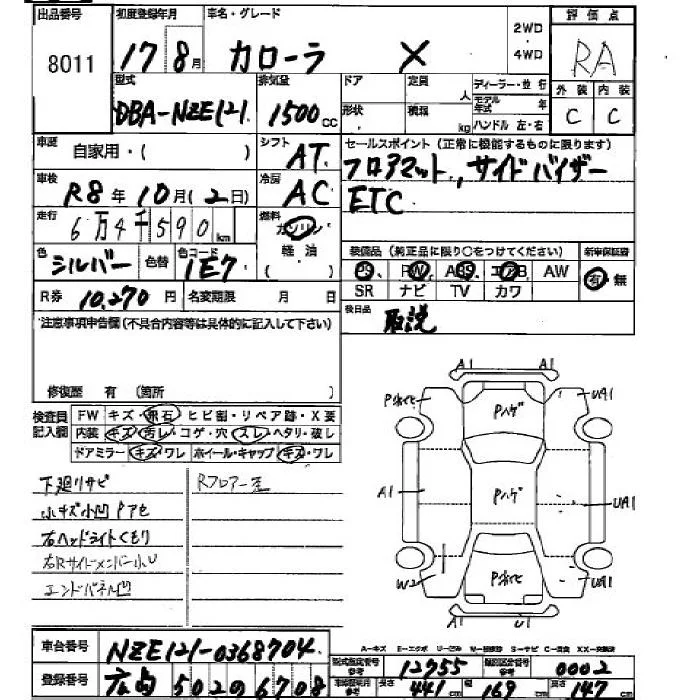 出品番号 初度登録年月 車名・グレード 2WD 評価点
8011 17 8月 カローラ X 4WD RA
型式 排気量 ドア 定員 人 ディーラー・並行 外装 内装
DBA-NZE121 1500cc 形状 積類 kg モデル年式 年 ハンドル 左・右 C C
車歴 自家用・( ) シフト AT セールスポイント(正常に機能するものに限ります)
車検 R8年10月(2日) 冷房 AC フロアマット, サイドバイザー
走行 6万4千590km 燃料 ガソリン ETC
色 シルバー 色替 色コード 1E7 軽油 ( ) 装備品(純正品に限り○をつけてください) 新車保証書
PS、PW、ABS、エアB、AW 有・無
R券 10,270円 名変期限 月 日 SR ナビ TV カワ
注意事項申告欄(不具合内容等は具体的に記入して下さい) 後日品 取説
修復歴 有 (箇所 )
検査員記入欄 FW キズ・飛石・ヒビ割・リペア跡・X要
内装 キズ・汚レ・コゲ・穴・スレ・ヘタリ・破レ
ドアミラー キズ・ワレ ホイール・キャップ キズ・ワレ
下廻リサビ Rフロアー歪
小キズ小凹 Pアセ
右ヘッドライトくもり
右Rサイドメンバー小U
エンドパネル凹
A1 A1
Pボケ Pハゲ UA1
A1 Pハゲ UA1
W2 Pボケ UA1
U U1
A-キズ E-エクボ U-ヘコミ W-補修跡 S-サビ C-腐食 XX-交換済
車台番号 NZE121-0368704 型式指定番号 参考 12755 類別区分番号 参考 0002
登録番号 502 の 6708 車検証明年月 参考 長さ 441cm 幅 169cm 高さ 147cm